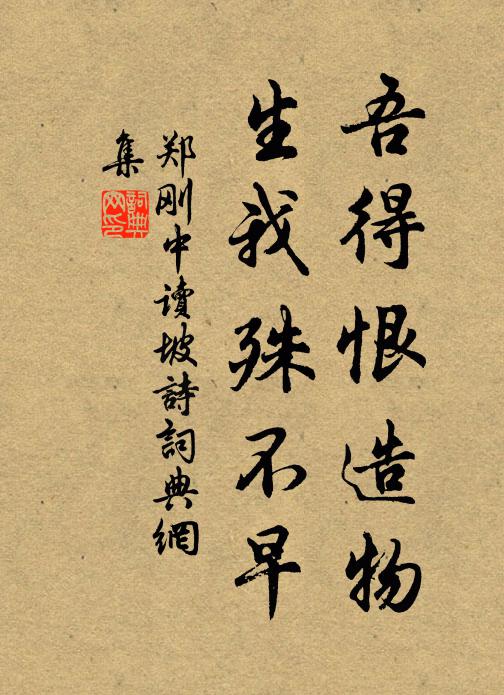 吾得恨造物
生我殊不早
郑刚中读坡詩詞典網
集
詞典网印